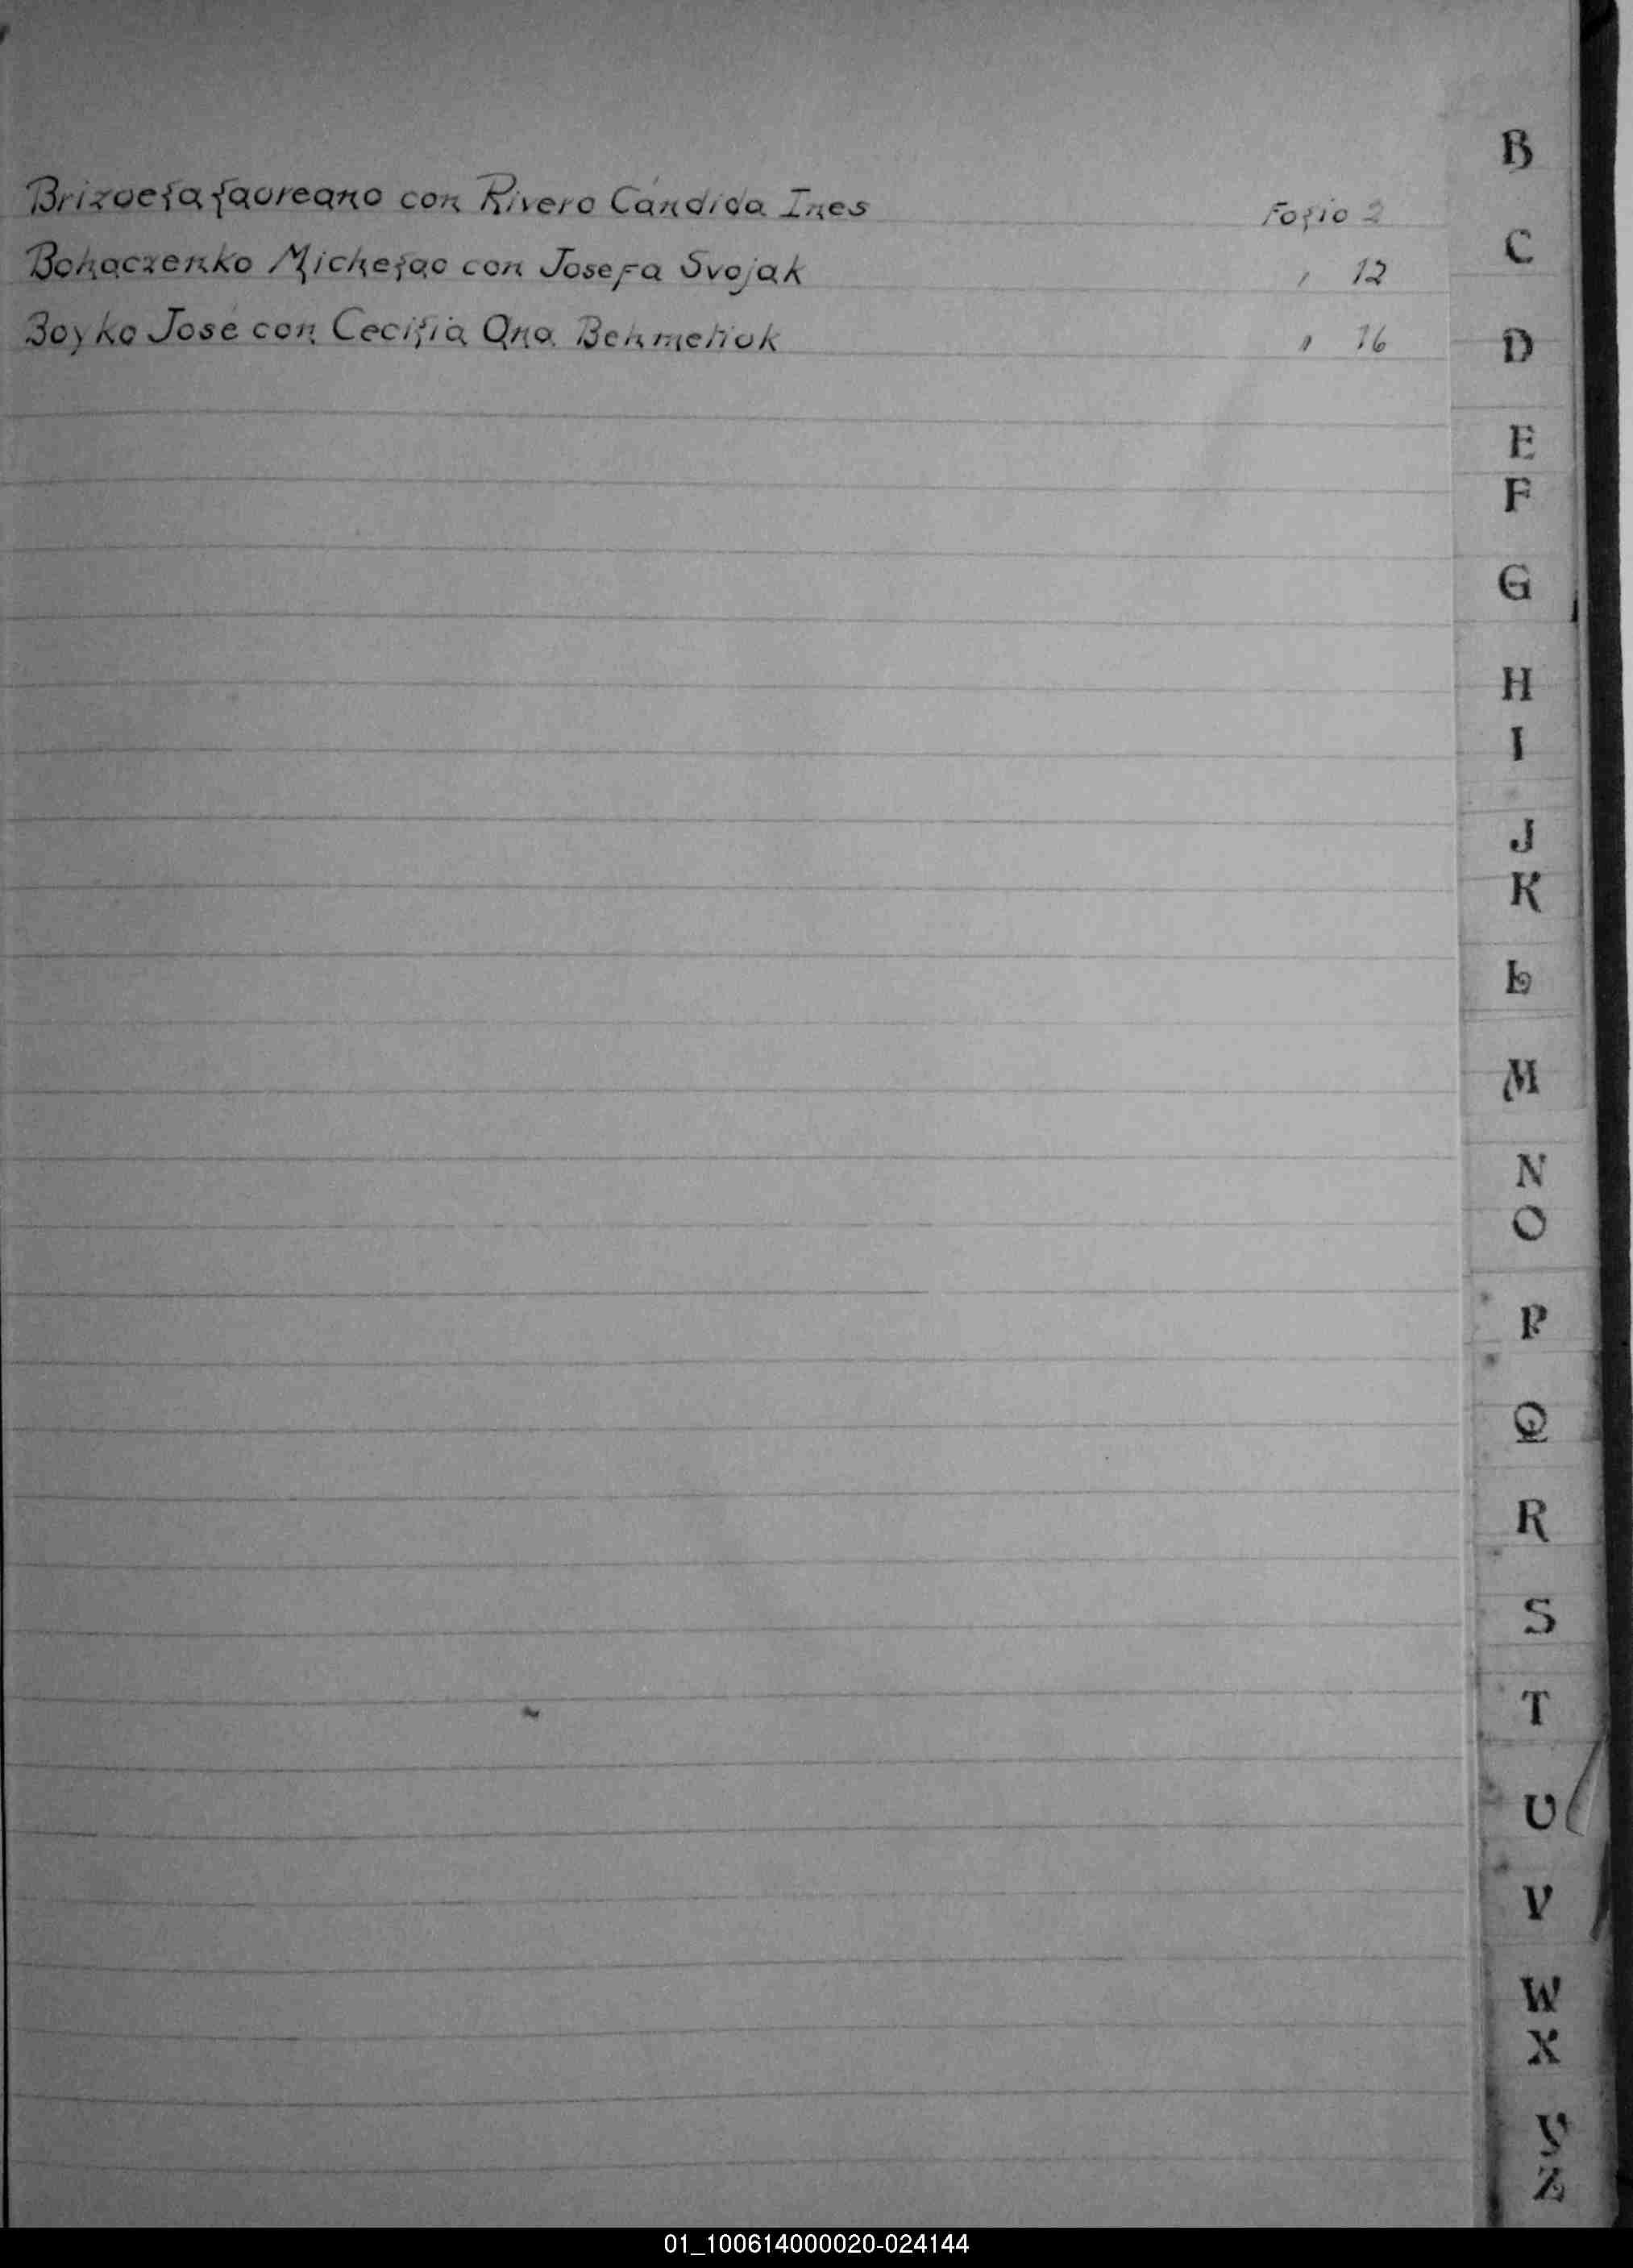 Brizoela Laureano con Rivero Cándida Ines Folio 2
Bohaczenko Michelao con Josefa Svojak , 12
Boyko José con Cecilia Ana , 16
B
C
D
E
F
G
H
I
J
K
L
M
N
O
P
Q
R
S
T
U
V
W
X
Y
Z
01_100614000020-024144